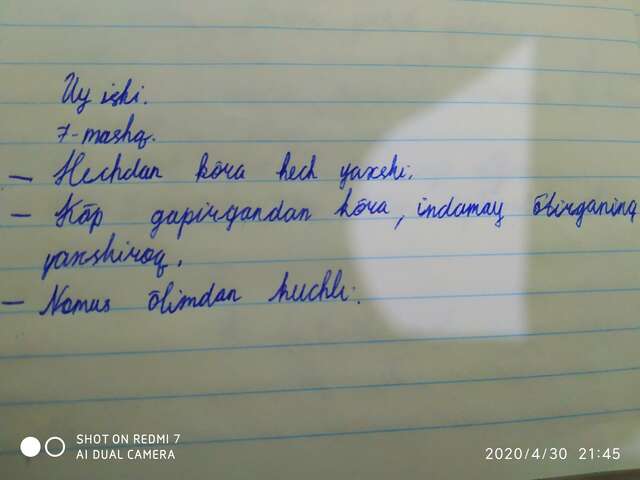 Uy ishi.
7-mashq.
– Hechdan kōra kech yaxshi.
– Kōp gapirgandan kōra, indamay ōtirganing
yaxshiroq.
– Nomus ōlimdan kuchli.
SHOT ON REDMI 7
AI DUAL CAMERA
2020/4/30 21:45